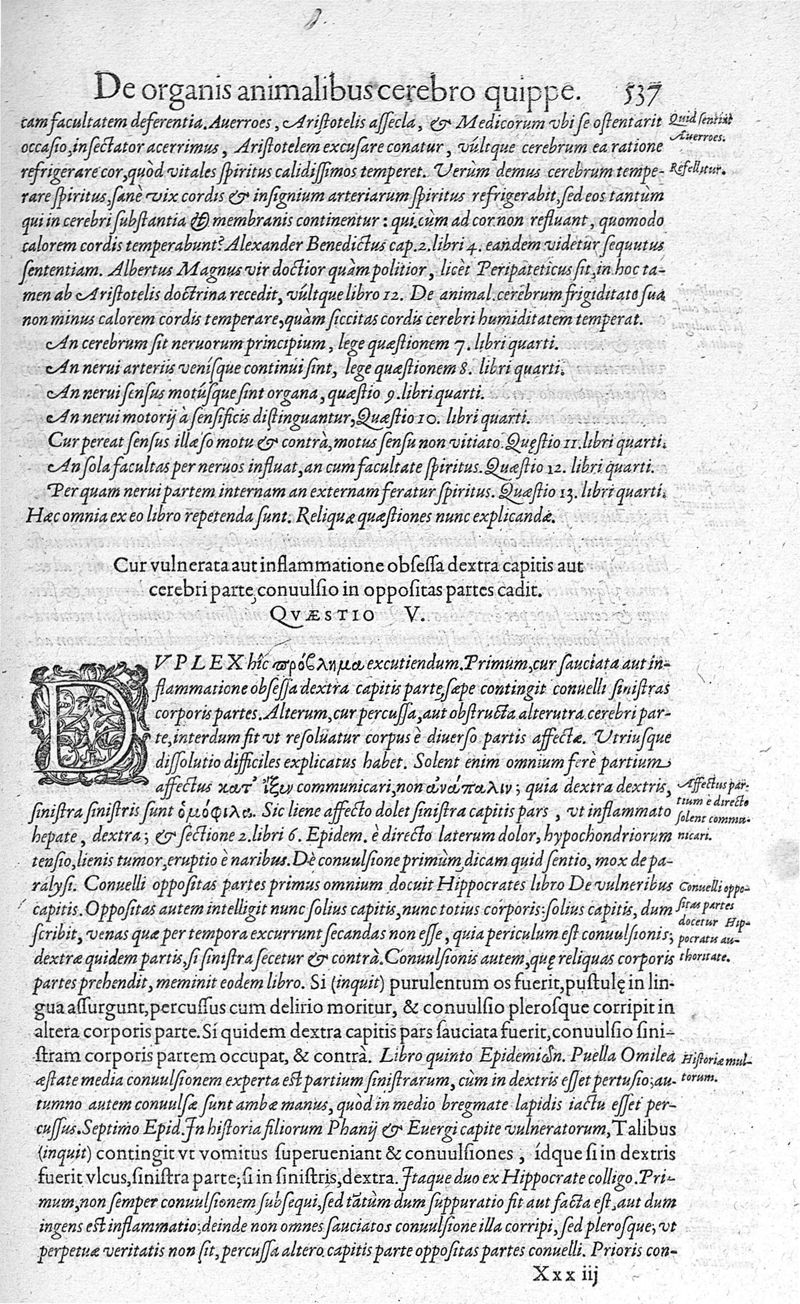 De organis animalibus cerebro quippe. 537
tam facultatem deferentia. Auerroes, Aristotelis assecla, & Medicorum vbi se ostentarit
occasio, insectator acerrimus, Aristotelem excusare conatur, vúltque cerebrum ea ratione
refrigerare cor, quòd vitales spiritus calidissimos temperet. Verùm demus cerebrum tempe-
rare spiritus, sanè vix cordis & insignium arteriarum spiritus refrigerabit, sed eos tantùm
qui in cerebri substantia & membranis continentur: qui cùm ad cor non refluant, quomodo
calorem cordis temperabunt? Alexander Benedictus cap. 2. libri 4. eandem videtur sequutus
sententiam. Albertus Magnus vir doctior quàm politior, licèt Peripateticus sit, in hoc ta-
men ab Aristotelis doctrina recedit, vúltque libro 12. De animal. cerebrum frigiditate sua
non minus calorem cordis temperare, quàm siccitas cordis cerebri humiditatem temperat.
Quid sentiat
Auerroes.
Refellitur.
An cerebrum sit neruorum principium, lege quæstionem 7. libri quarti.
An nerui arteriis venisque continui sint, lege quæstionem 8. libri quarti.
An nerui sensus motúsque sint organa, quæstio 9. libri quarti.
An nerui motorij à sensificis distinguantur, Quæstio 10. libri quarti.
Cur pereat sensus illæso motu & contrà, motus sensu non vitiato. Quęstio 11. libri quarti.
An sola facultas per neruos influat, an cum facultate spiritus. Quæstio 12. libri quarti.
Per quam nerui partem internam an externam feratur spiritus. Quæstio 13. libri quarti.
Hæc omnia ex eo libro repetenda sunt. Reliquæ quæstiones nunc explicandæ.
Cur vulnerata aut inflammatione obsessa dextra capitis aut
cerebri parte, conuulsio in oppositas partes cadit.
QVÆSTIO V.
DVPLEX hîc πρόβλημα excutiendum. Primum, cur sauciata aut in-
flammatione obsessa dextra capitis parte, sæpe contingit conuelli sinistras
corporis partes. Alterum, cur percussa, aut obstructa alterutra cerebri par-
te, interdum fit vt resoluatur corpus è diuerso partis affectæ. Vtriusque
dissolutio difficiles explicatus habet. Solent enim omnium ferè partium
affectus κατ' ἴξιν communicari, non ἀνάπαλιν; quia dextra dextris,
sinistra sinistris sunt ὁμόφιλα. Sic liene affecto dolet sinistra capitis pars, vt inflammato
hepate, dextra; & sectione 2. libri 6. Epidem. è directo laterum dolor, hypochondriorum
tensio, lienis tumor, eruptio è naribus. Dè conuulsione primùm dicam quid sentio, mox de pa-
ralysi. Conuelli oppositas partes primus omnium docuit Hippocrates libro De vulneribus
capitis. Oppositas autem intelligit nunc solius capitis, nunc totius corporis: solius capitis, dum
scribit, venas quæ per tempora excurrunt secandas non esse, quia periculum est conuulsionis;
dextræ quidem partis, si sinistra secetur & contrà. Conuulsionis autem, quę reliquas corporis
partes prehendit, meminit eodem libro. Si (inquit) purulentum os fuerit, pustulę in lin-
gua assurgunt, percussus cum delirio moritur, & conuulsio plerosque corripit in
altera corporis parte. Si quidem dextra capitis pars sauciata fuerit, conuulsio sini-
stram corporis partem occupat, & contrà. Libro quinto Epidemiῶν. Puella Omilea
æstate media conuulsionem experta est partium sinistrarum, cùm in dextris esset pertusio; au-
tumno autem conuulsæ sunt ambæ manus, quòd in medio bregmate lapidis iactu esset per-
cussus. Septimo Epid. In historia filiorum Phanij & Euergi capite vulneratorum, Talibus
(inquit) contingit vt vomitus superueniant & conuulsiones, ídque si in dextris
fuerit vlcus, sinistra parte; si in sinistris, dextra. Itaque duo ex Hippocrate colligo. Pri-
mum, non semper conuulsionem subsequi, sed tātùm dum suppuratio fit aut facta est, aut dum
ingens est inflammatio; deinde non omnes sauciatos conuulsione illa corripi, sed plerosque; vt
perpetuæ veritatis non sit, percussa altero capitis parte oppositas partes conuelli. Prioris con-
Affectus par-
tium è directo
solent commu-
nicari.
Conuelli oppo-
sitas partes
docetur Hip-
pocratis au-
thoritate.
Historiæ mul-
torum.
Xxx iij